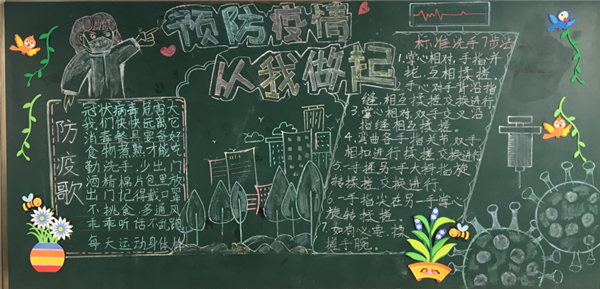 预防疫情
从我做起
防疫歌
冠状病毒危害大
我们远离它
消毒餐具要备好
食物煮熟才能吃
勤洗手少出门
酒精棉片包里放
出门记得戴口罩
不挑食多通风
乖乖听话不乱跑
每天运动身体
标准洗手7步法
1.掌心相对,手指并
拢,互相揉搓.
2.手心对手背沿指
缝相互揉搓交换进行
3.掌心相对,双手交叉沿
指缝相互揉搓.
4.弯曲各手指关节,双手
相扣进行揉搓,交换进行
5.一手握另一手大拇指旋
转揉搓,交换进行.
6.一手指尖在另一手掌心
旋转揉搓.
7.如有必要,揉
搓手腕.